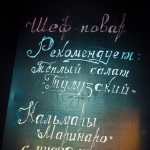 Шеф повар
Рекомендует:
Тёплый салат
Тулузский-
Кальмары
"Маринаро"
с